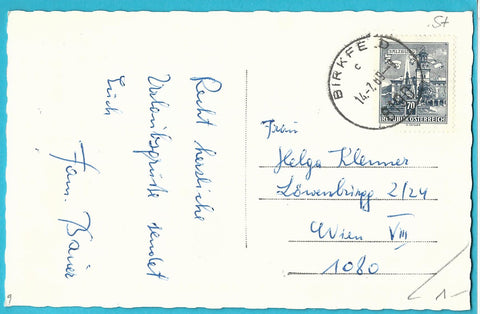 St
BIRKFELD
REPUBLIK ÖSTERREICH
70
Recht herzliche
Urlaubsgrüße sendet
Euch
Fam. Bauer
Frau
Helga Klenner
2/24
Wien VIII
1080
1-
9